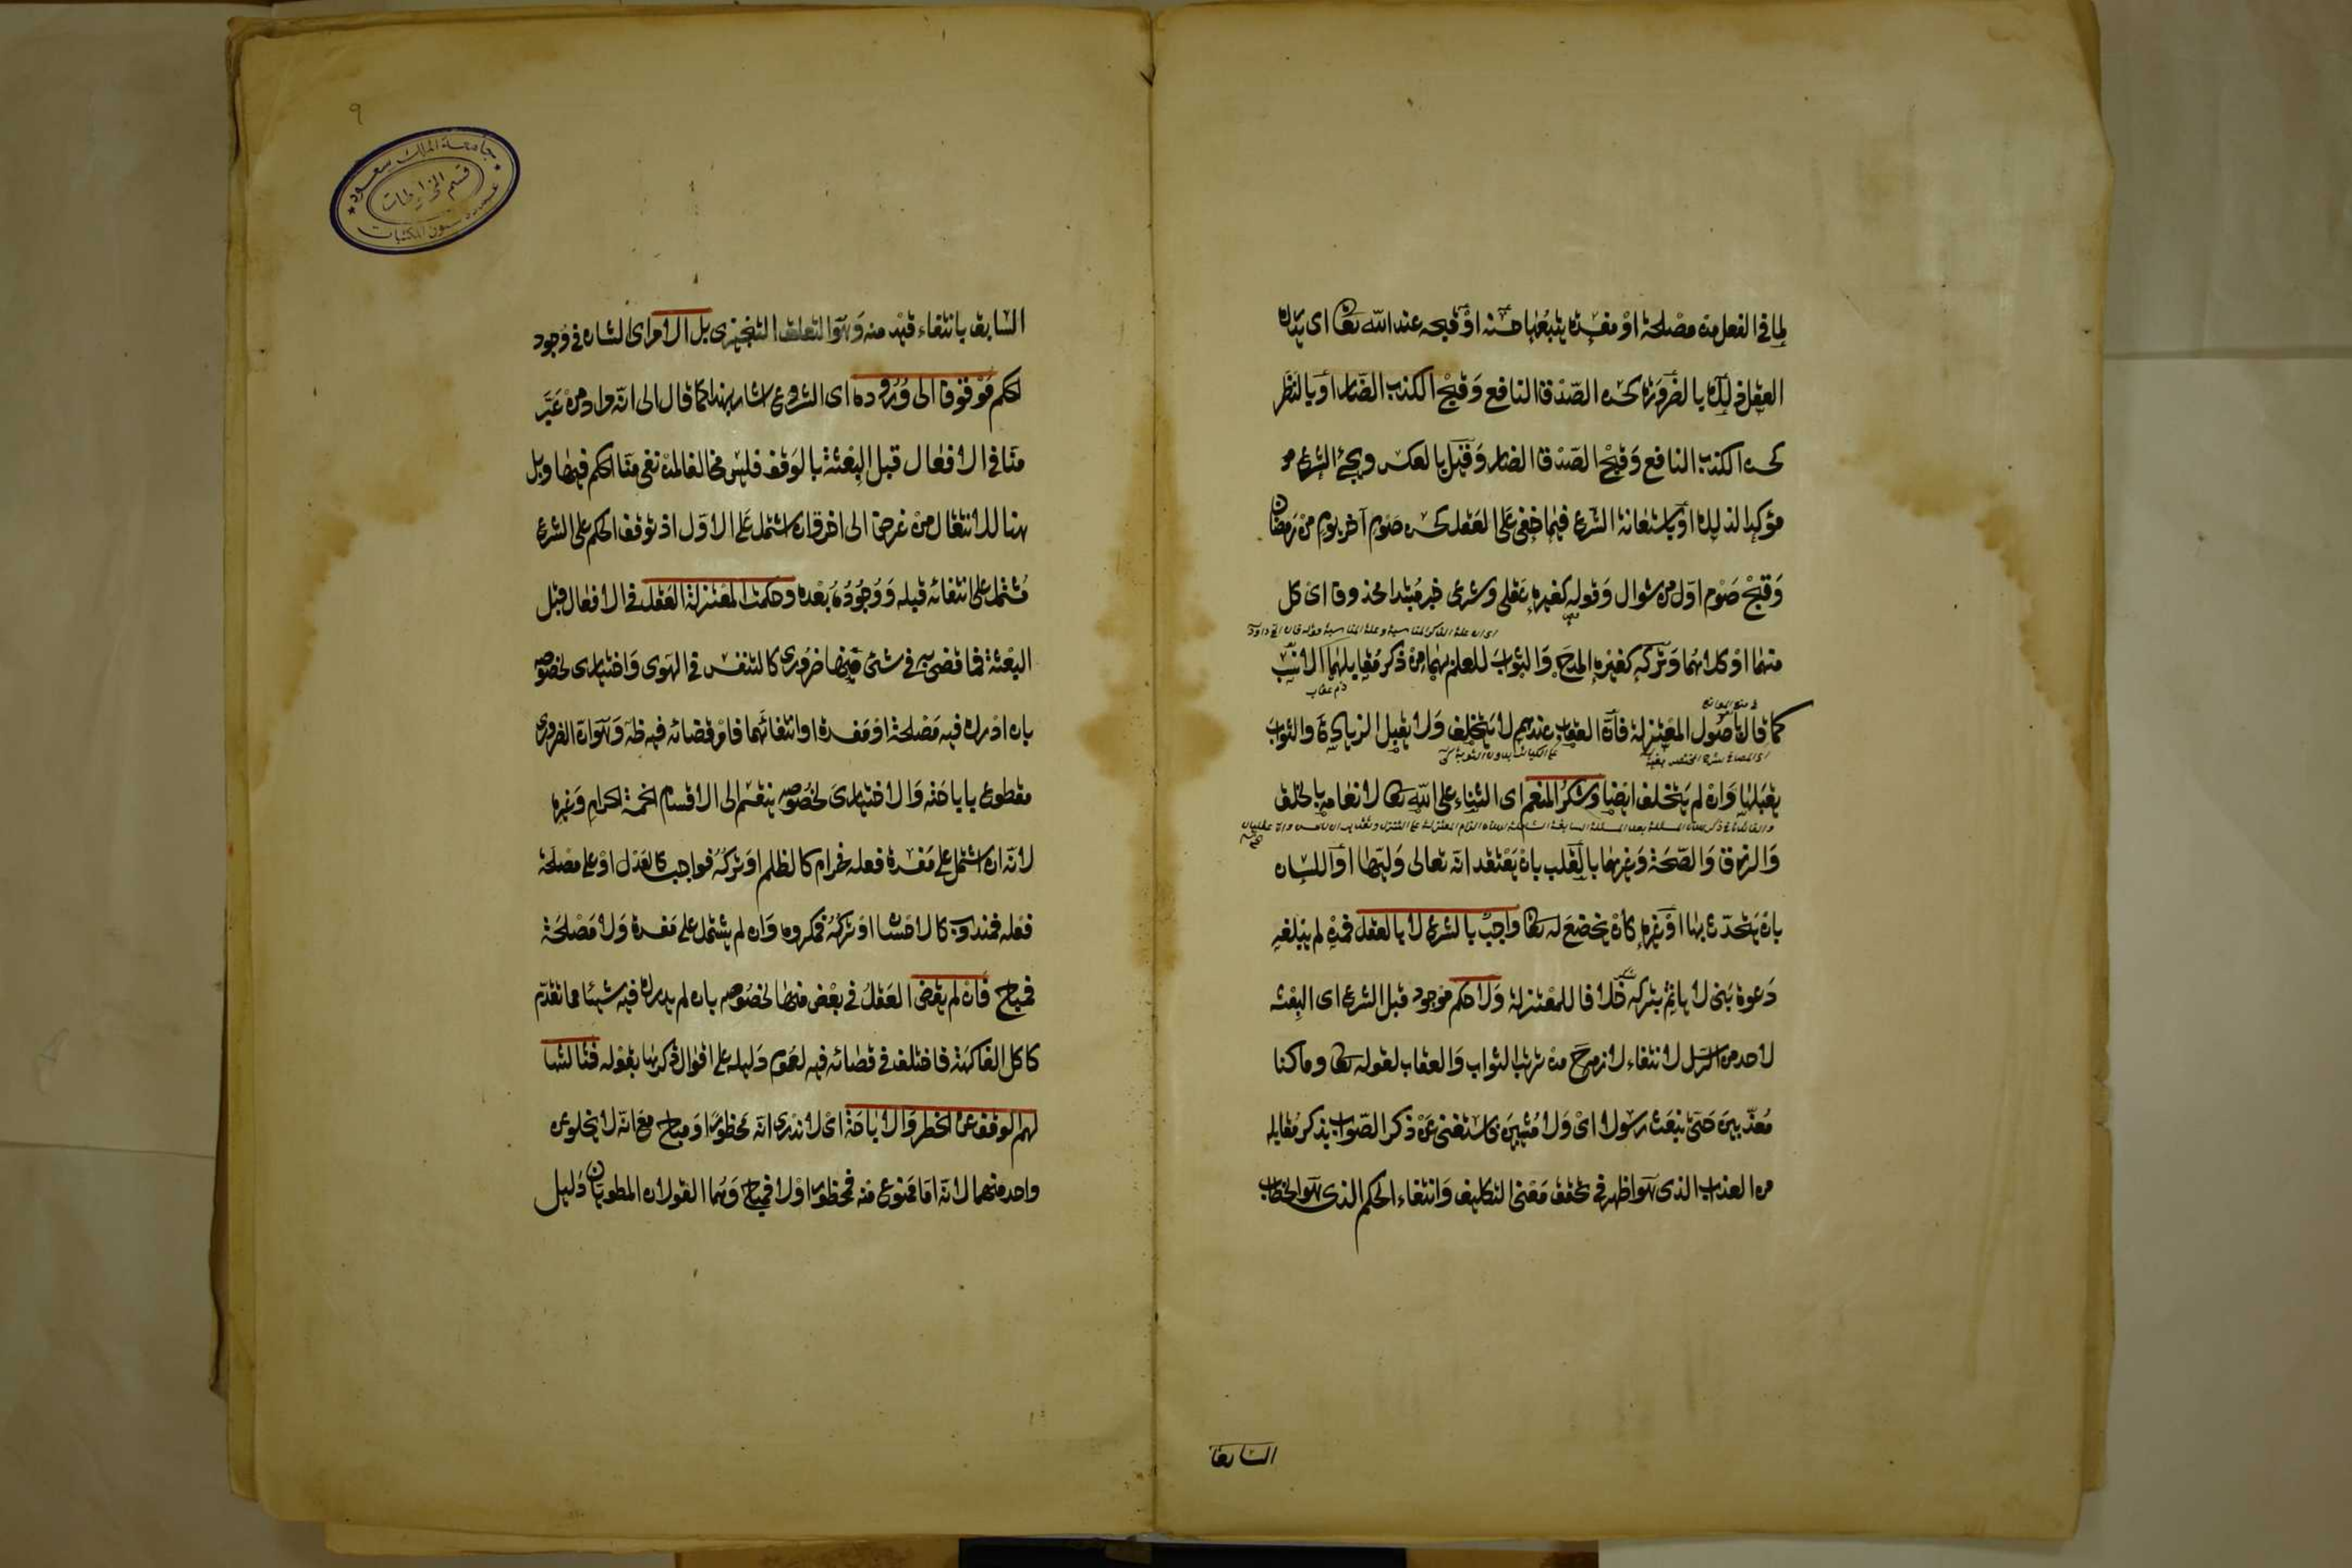 لما في الفعل من مصلحة او مفسدة يتبعها حسنه او قبحه عند الله تعا اى يدرك
العقل ذلك بالضرورة كحسن الصدق النافع وقبح الكذب الضار او بالنظر
كحسن الكذب النافع وقبح الصدق الضار وقيل بالعكس ويجئ الشرع
مؤكدا لذلك او باستعانة الشرع فيما خفى على العقل كحسن صوم آخر يوم من رمضان
وقبح صوم اول من شوال وقوله كغيره عقلى وشرعى خبر مبتدا محذوف اى كل
منهما او كلاهما وتركه كغيره المدح والثواب للعلم بهما من ذكر مقابلهما الانسب
ذم عقاب
كما قال باصول المعتزلة فان العقاب عندهم لا يتخلف ولا يقبل الزيادة والثواب
يقبلها وان لم يتخلف ايضا وشكر المنعم اى الثناء على الله تعا لانعامه بالخلق
والرزق والصحة وغيرها بالقلب بان يعتقد انه تعالى وليها او اللسان
بان يتحدث بها او غيره كان يخضع له تعا واجب بالشرع لا بالعقل فمن لم يبلغه
دعوة نبى لا ياثم بتركه خلافا للمعتزلة ولا حكم موجود قبل الشرع اى البعثة
لاحد من الرسل لانتفاء لازمه ح من ترتب الثواب والعقاب لقوله تعا وما كنا
معذبين حتى نبعث رسولا اى ولا مثيبين فاستغنى عن ذكر الثواب بذكر مقابله
من العذاب الذى هو اظهر في تحقق معنى التكليف وانتفاء الحكم الذى هو الخطاب
السابق
٩
جامعة الملك سعود
قسم المخطوطات
عمادة شئون المكتبات
السابق بانتفاء قيد منه وهو التعلق التنجيزى بل الامر اى الشان في وجود
الحكم موقوف الى وروده اى الشروع اشار بهذا كما قال الى انه مراد من عبر
منا في الافعال قبل البعثة بالوقف فليس مخالفا لمن نفى منا الحكم فيها وبل
هنا للانتقال من غرض الى اخر وان اشتمل على الاول اذ توقف الحكم على الشرع
مشتمل على انتفائه قبله ووجوده بعده وحكمت المعتزلة العقل في الافعال قبل
البعثة فما قضى به في شئ منها ضرورى كالتنفس في الهوى واختيارى لخصوصه
بان ادرك فيه مصلحة او مفسدة او انتفائهما فامر قضائه فيه ظ وهو ان الضرورى
مقطوع باباحته والاختيارى لخصوصه ينقسم الى الاقسام الخمسة الحرام وغيره
لانه ان اشتمل على مفسدة فعله فحرام كالظلم او تركه فواجب كالعدل او على مصلحة
فعله فمندوب كالاحسان او تركه فمكروه وان لم يشتمل على مفسدة ولا مصلحة
فمباح فان لم يقض العقل في بعض منها لخصوصه بان لم يدرك فيه شيئا مما تقدم
كاكل الفاكهة فاختلف في قضائه فيه لعموم دليله على اقوال ذكرها بقوله فثالثها
لهم الوقف عن الحظر والاباحة اى لا ندرى انه محظور او مباح مع انه لا يخلو عن
واحد منهما لانه اما ممنوع منه فمحظور او لا فمباح وهما القولان المطويان دليل